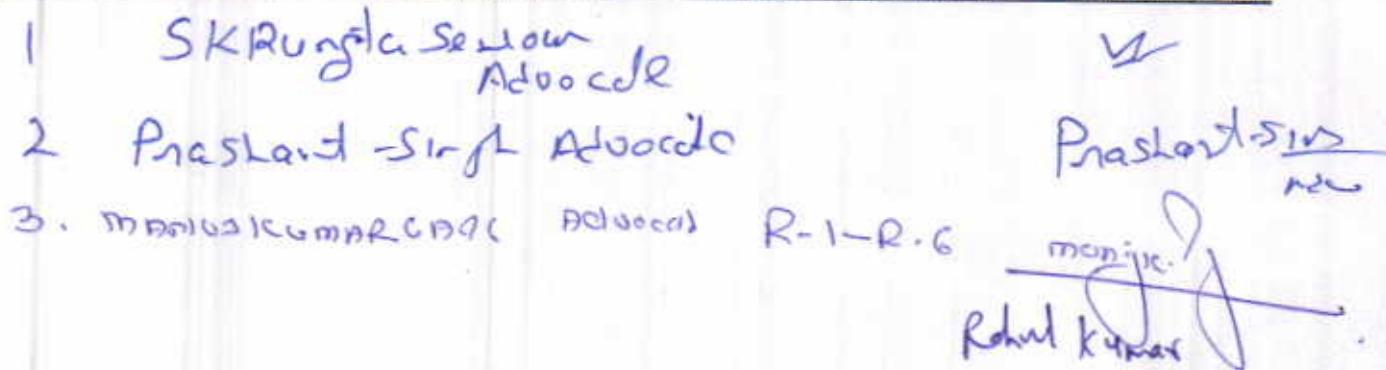 1 SKRungta Senior
Advocate
2 Prashant Singh Advocate Prashant Singh
3. MANOJ KUMAR GARG Advocate R-1-R.6 manoj k.
Rahul Kumar